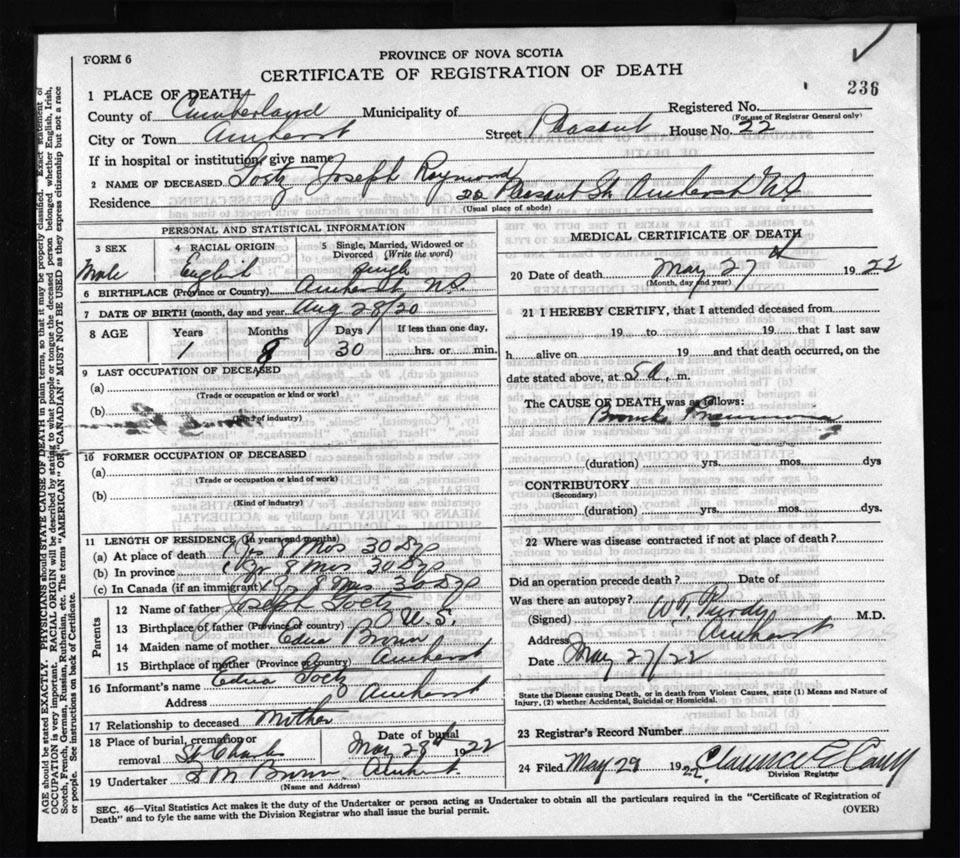 236
FORM 6
PROVINCE OF NOVA SCOTIA
CERTIFICATE OF REGISTRATION OF DEATH
1 PLACE OF DEATH
County of Cumberland Municipality of Registered No.
(For use of Registrar General only)
City or Town Amherst Street Pleasant House No. 22
If in hospital or institution, give name
2 NAME OF DECEASED Joseph Raymond
Residence 22 Pleasant St. Amherst N.S.
(Usual place of abode)
PERSONAL AND STATISTICAL INFORMATION
3 SEX 4 RACIAL ORIGIN 5 Single, Married, Widowed or Divorced (Write the word)
Male English Single
6 BIRTHPLACE (Province or Country) Amherst N.S.
7 DATE OF BIRTH (month, day and year) Aug 28/20
8 AGE Years Months Days If less than one day,
1 8 30 hrs. or min.
9 LAST OCCUPATION OF DECEASED
(a)
(Trade or occupation or kind of work)
(b)
(Kind of industry)
10 FORMER OCCUPATION OF DECEASED
(a)
(Trade or occupation or kind of work)
(b)
(Kind of industry)
11 LENGTH OF RESIDENCE (In years and months)
(a) At place of death 1 Yr 8 Mos 30 Dys
(b) In province 1 Yr 8 Mos 30 Dys
(c) In Canada (if an immigrant) 1 Yr 8 Mos 30 Dys
Parents
12 Name of father Joseph
13 Birthplace of father (Province or country) U.S.
14 Maiden name of mother Edna Brown
15 Birthplace of mother (Province or Country) Amherst
16 Informant's name Edna
Address Amherst
17 Relationship to deceased Mother
18 Place of burial, cremation or removal St Charles Date of burial May 28th 1922
19 Undertaker Brown Amherst
(Name and Address)
MEDICAL CERTIFICATE OF DEATH
20 Date of death May 27th 1922
(Month, day and year)
21 I HEREBY CERTIFY, that I attended deceased from
19 to 19 that I last saw
h alive on 19 and that death occurred, on the
date stated above, at 5 a. m.
The CAUSE OF DEATH was as follows:
Broncho Pneumonia
(duration) yrs. mos. dys
CONTRIBUTORY
(Secondary)
(duration) yrs. mos. dys.
22 Where was disease contracted if not at place of death?
Did an operation precede death? Date of
Was there an autopsy?
(Signed) Purdy M.D.
Address Amherst
Date May 27/22
State the Disease causing Death, or in death from Violent Causes, state (1) Means and Nature of
Injury, (2) whether Accidental, Suicidal or Homicidal.
23 Registrar's Record Number
24 Filed May 29 1922 Clarence
Division Registrar
SEC. 46—Vital Statistics Act makes it the duty of the Undertaker or person acting as Undertaker to obtain all the particulars required in the "Certificate of Registration of
Death" and to fyle the same with the Division Registrar who shall issue the burial permit. (OVER)
AGE should be stated EXACTLY. PHYSICIANS should STATE CAUSE OF DEATH in plain terms, so that it may be properly classified. Exact statement of
OCCUPATION is very important. RACIAL ORIGIN will be described by stating to what people or tongue the deceased person belonged whether English, Irish,
Scotch, French, German, Russian, Ruthenian, etc. The terms "AMERICAN" OR "CANADIAN" MUST NOT BE USED as they express citizenship but not a race
or people. See instructions on back of Certificate.